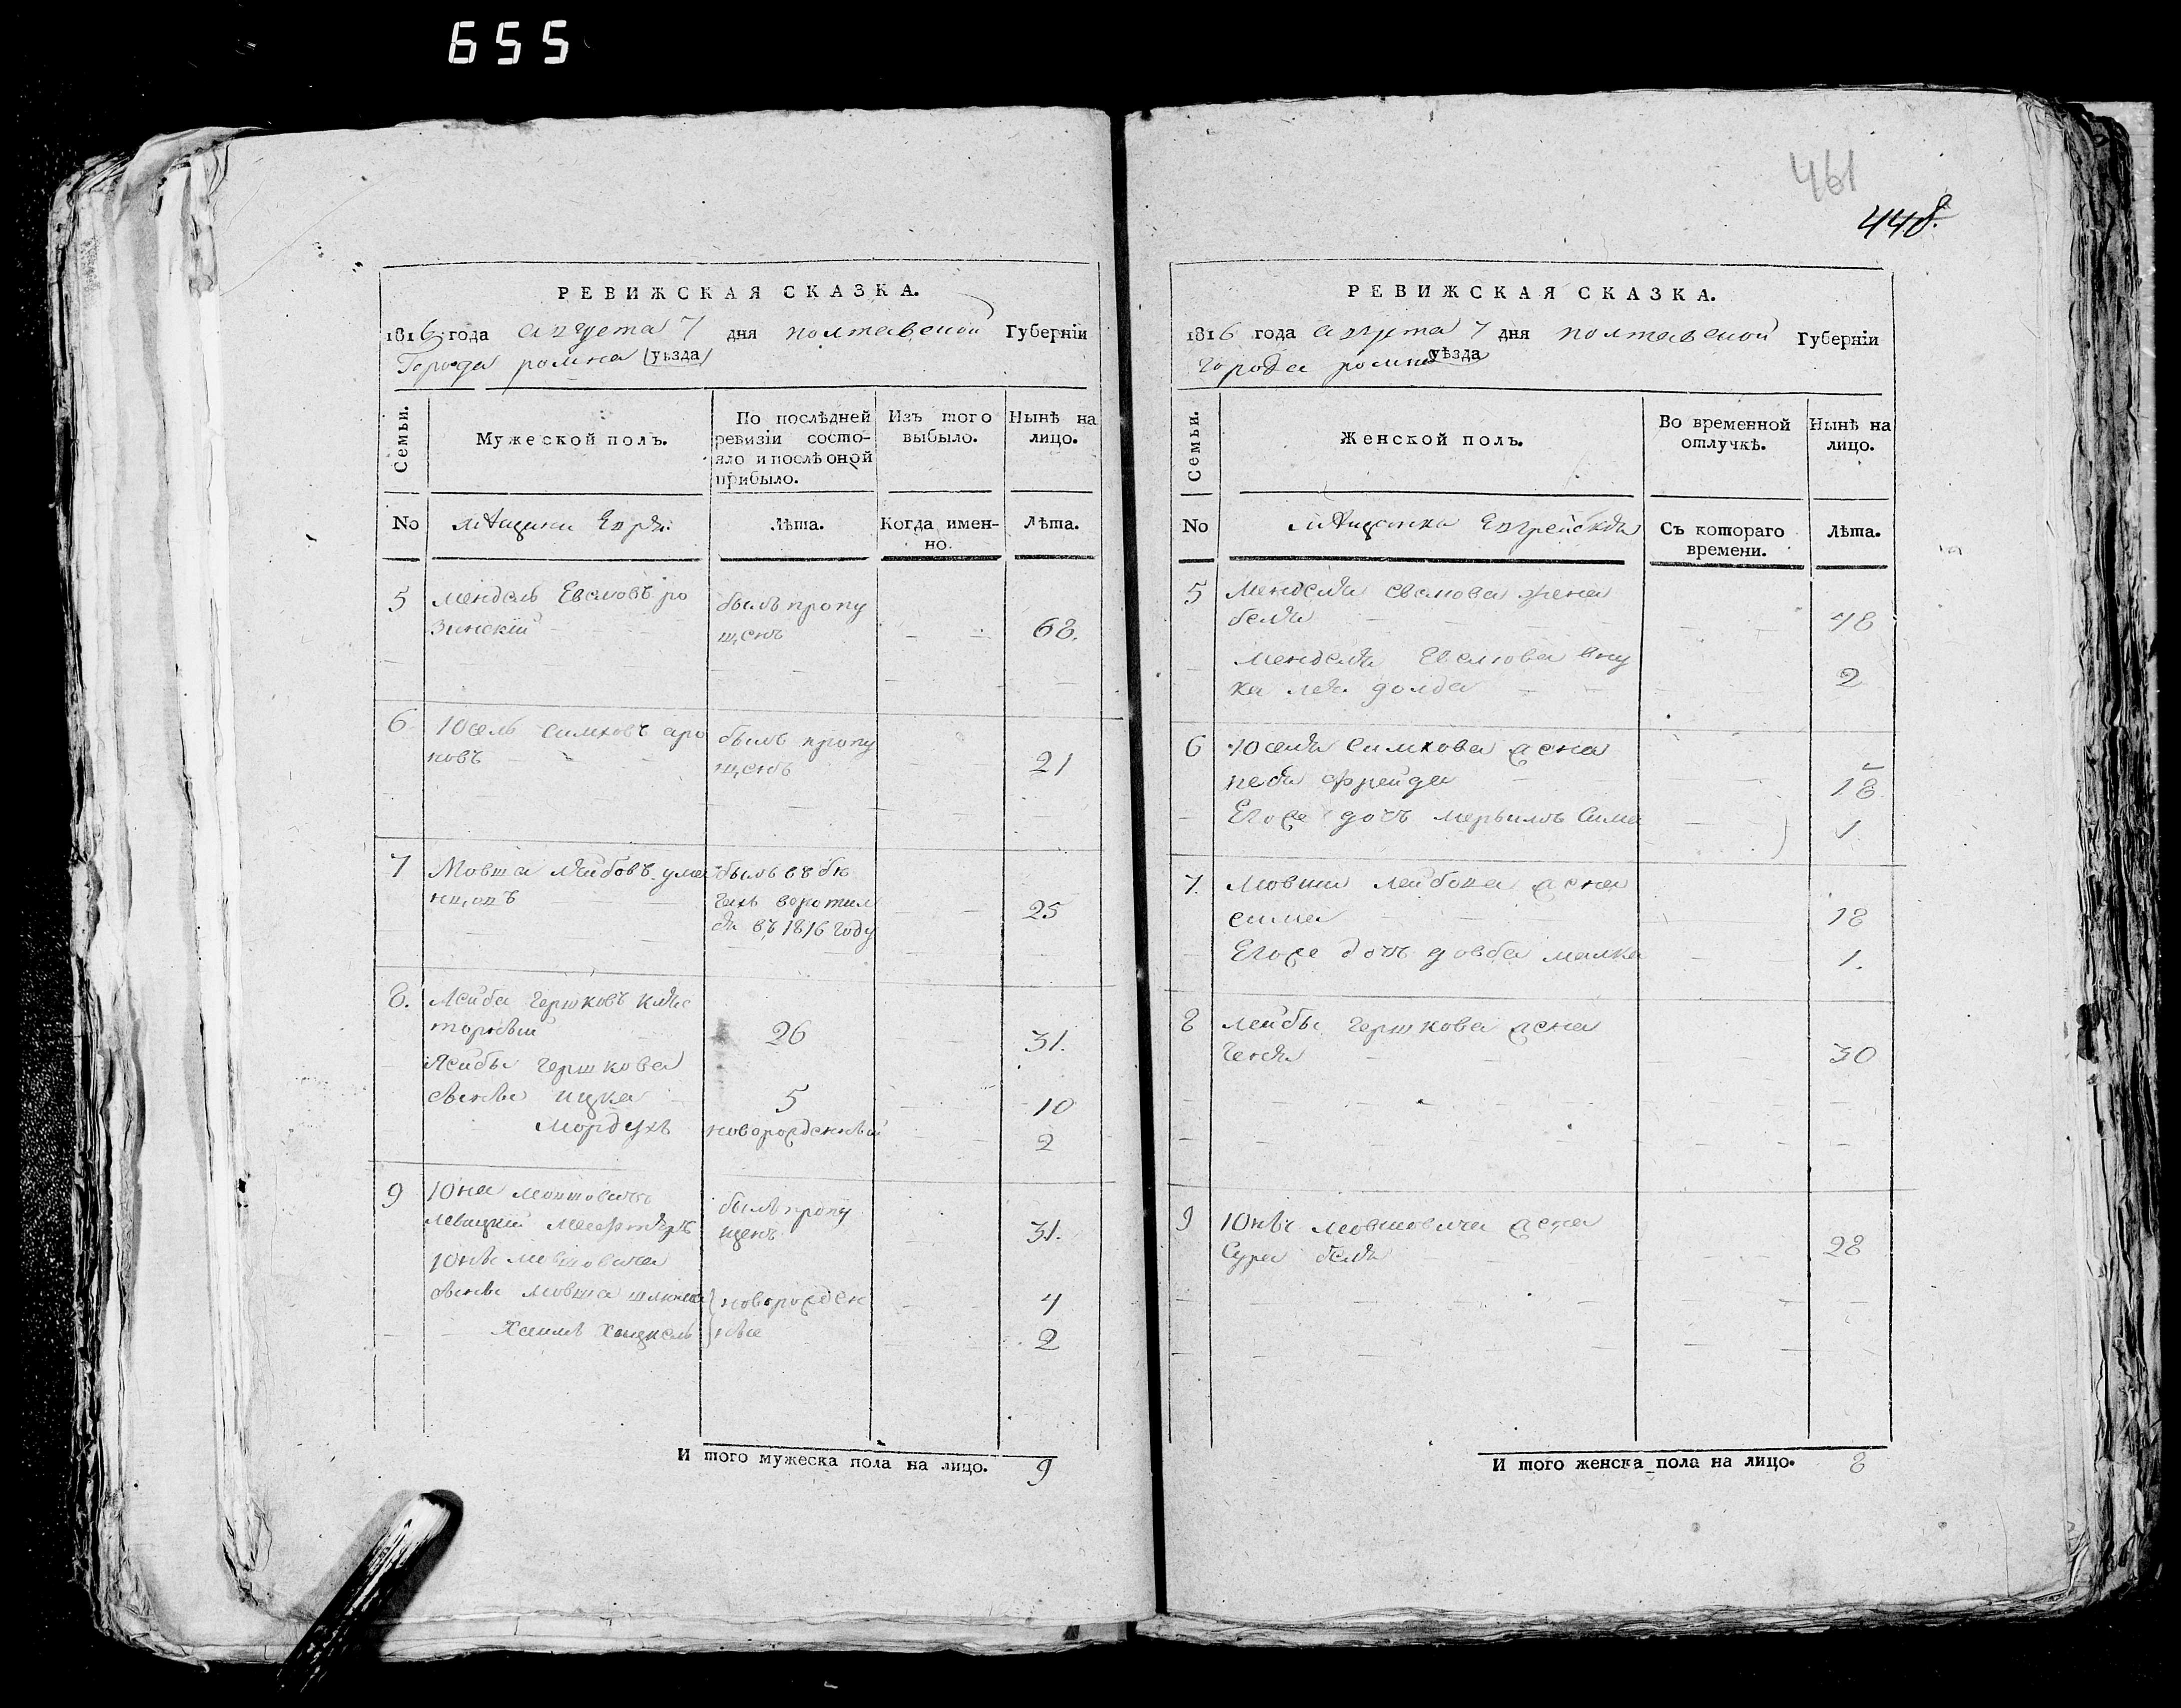 655
461
448.
РЕВИЖСКАЯ СКАЗКА.
1816 года августа 7 дня полтавской Губерніи
Города ромна (уѣзда)
Семьи.
Мужеской полъ.
По послѣдней
ревизіи состо-
яло и послѣ оной
прибыло.
Изъ того
выбыло.
Нынѣ на
лицо.
No
мѣщани Евреи
Лѣта.
Когда имен-
но.
Лѣта.
5 мендель Евелювъ ро
зинскій
былъ пропу
щенъ
68.
6 Юсель симховъ аро
новъ
былъ пропу
щенъ
21
7 Мовша лейбовъ
былъ въ бѣ
гахъ воротил
ся въ 1816 году
25
8. Лейба гершковъ
26
31.
Лейбы гершкова
сынъ ицка
5
10
Мордухъ
новорожденный
2
9 Юна мовшовичъ
левицкій
былъ пропу
щенъ
31.
Юны мовшовича
сыны мовша шлюма
новорожден
4
Хаимъ Хацкель
ные
2
И того мужеска пола на лицо. 9
РЕВИЖСКАЯ СКАЗКА.
1816 года августа 7 дня полтавской Губерніи
города ромна уѣзда
Семьи.
Женской полъ.
Во временной
отлучкѣ.
Нынѣ на
лицо.
No
мѣщанки Еврейскія
Съ котораго
времени.
Лѣта.
5 Менделя евелюва жена
бейля
48
Менделя Евелюва вну
ка лея
2
6 Юселя Симхова жена
песя фрейда
18
Егоже дочъ Сима
1
7. мовши лейбова жена
сима
18
Егоже дочъ двоба малка
1.
8 лейбы гершкова жена
геня
30
9 Юны мовшовича жена
Сура бейля
28
И того женска пола на лицо. 8